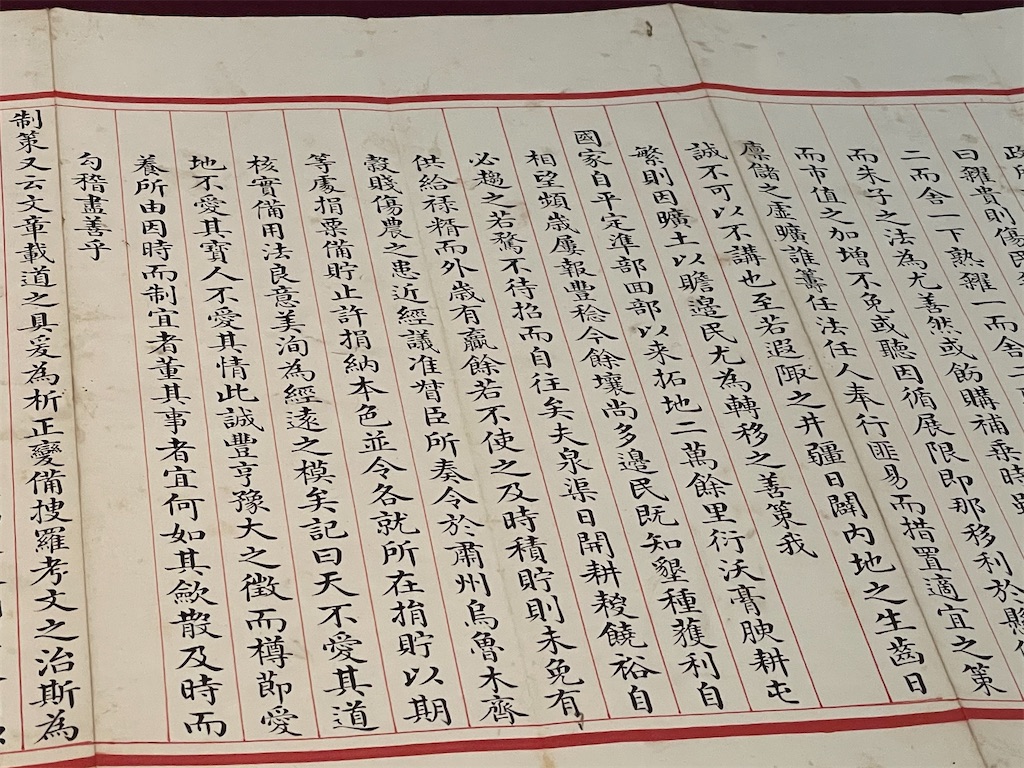 政所
曰糴貴則傷民
二而舍一下熟糴一而舍二
而朱子之法為尤善然或飭購補乗時
而市值之加增不免或聽因循展限即那移利於縣
廩儲之虛曠誰籌任法任人奉行匪易而措置適宜之策
誠不可以不講也至若遐陬之井疆日闢內地之生齒日
繁則因曠土以贍邊民尤為轉移之善策我
國家自平定準部回部以来拓地二萬餘里衍沃膏腴耕屯
相望頻歲屢報豐稔今餘壤尚多邊民既知墾種穫利自
必趨之若鶩不待招而自往矣夫泉渠日開耕耰饒裕自
供給禄糈而外歲有贏餘若不使之及時積貯則未免有
穀賤傷農之患近經議准督臣所奏令於肅州烏魯木齊
等處捐粟備貯止許捐納本色並令各就所在捐貯以期
核實備用法良意美洵為經遠之模矣記曰天不愛其道
地不愛其寶人不愛其情此誠豐亨豫大之徵而樽節愛
養所由因時而制宜者董其事者宜何如其歛散及時而
勾稽盡善乎
制策又云文章載道之具爰為析正變備搜羅考文之治斯為